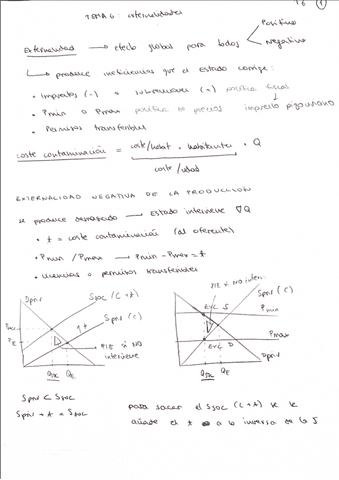 T6 1
TEMA 6: externalidades
Positivo
Externalidad → efecto global para todos
Negativo
↳ produce ineficiencias que el estado corrige:
• Impuestos (-) o subvenciones (+) política fiscal
• Pmin o Pmax política de precios impuesto pigouviano
• Permisos transferibles
coste contaminación = coste/udat · habitantes · Q
coste/udad
EXTERNALIDAD NEGATIVA DE LA PRODUCCION
se produce demasiado → Estado interviene ∇Q
• t = coste contaminación (al oferente)
• Pmin / Pmax → Pmin - Pmax = t
• licencias o permisos transferibles
Dpriv
Ssoc (C+t)
↑t
Spriv (C)
PE
PTE si NO
interviene
QSOC QE
PTE si NO interv.
Spriv (C)
EVC S
Pmin
Pmax
EVC D
Dpriv
QSOC QE
Spriv < Ssoc
Spriv + t = Ssoc
para sacar el Ssoc (C+t) se le
añade el t a la inversa de la S